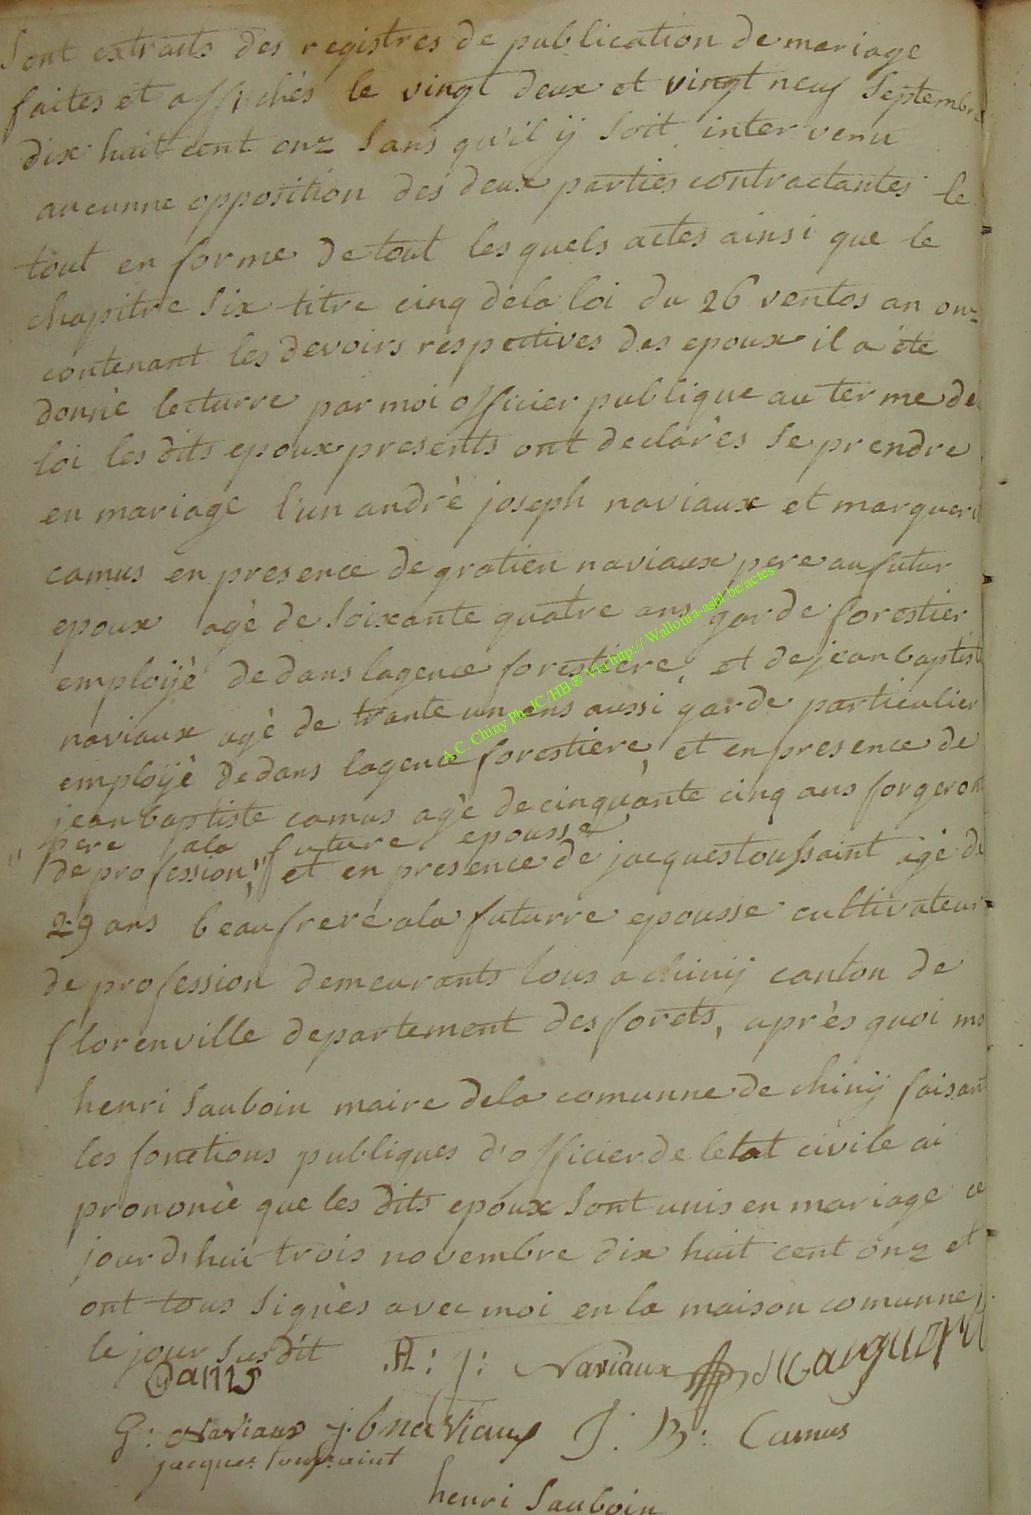 Sont extraits des registres de publication de mariage
faites et affichés le vingt deux et vingt neuf Septembre
dix huit cent onz Sans qu'il ÿ Soit intervenu
aucunne opposition des deux parties contractantes le
tout en forme de tout les quels actes ainsi que le
chapitre Six titre cinq dela loi du 26 ventos an onz
contenant les devoirs respectives des epoux il a été
donné lecturre par moi officier publique au terme de
loi les dits epoux presents ont declarés Se prendre
en mariage l'un andrè joseph naviaux et marguerit
camus en presence de gratien naviaux pere au futur
epoux agè de Soixante quatre ans garde forestier
employè dedans lagence forestiere, et de jean baptist
naviaux agè de trante un ans aussi garde particulier
employè dedans lagence forestiere, et en presence de
jean baptiste camus agè de cinquante cinq ans forgeron
" pere ala future epousse
de profession," et en presence de jacques toussaint agè de
29 ans beaufrere ala futurre epousse cultivateur
de profession demeurants tous a chinÿ canton de
florenville departement des forets, après quoi moi
henri Sauboin maire dela comunne de chinÿ faisant
les fonctions publiques d'officier de letat civile ai
prononcè que les dits epoux Sont unis en mariage ce
jourdhui trois novembre dix huit cent onz et
ont tous Signès avec moi en la maison comunne
le jour Susdit A: j: Naviaux marguerit
Camus
G: Naviaux j. b naviaux J: B: Camus
jacques toussaint
henri Sauboin
A.C. Chiny Ph. JC/HB® Via http:// Wallonia-asbl.be/actes